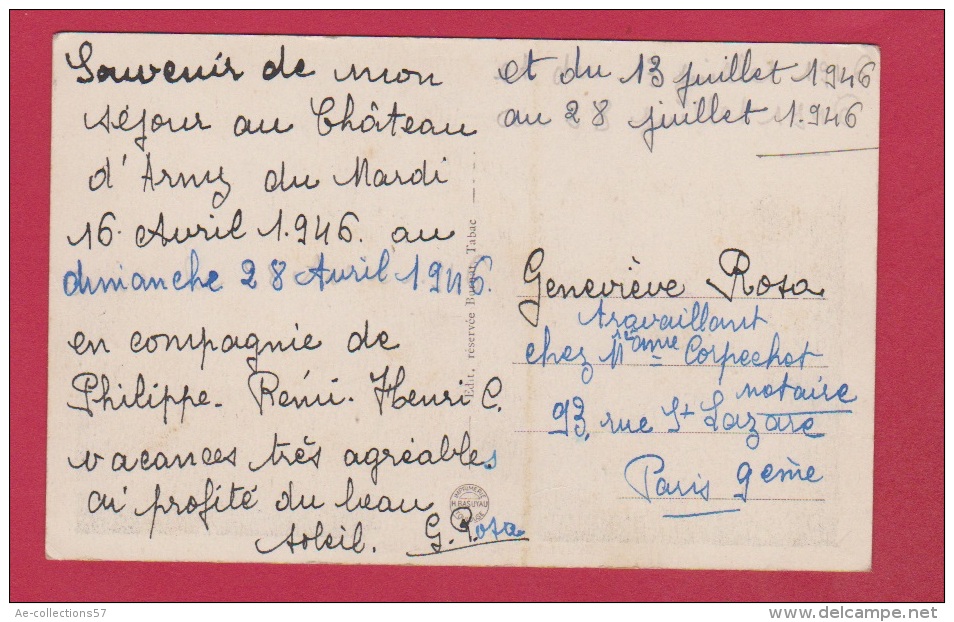 Souvenir de mon
séjour au Château
d'Army du Mardi
16 Avril 1.946. au
dimanche 28 Avril 1946.
en compagnie de
Philippe. Rémi. Henri C.
vacances très agréables
ai profité du beau
soleil. G. Rosa
et du 13 juillet 1946
au 28 juillet 1.946
Geneviève Rosa
travaillant
chez Corpechot
notaire
93, rue St Lazare
Paris 9eme
Edit. réservée Tabac
IMPRIMERIE
H. BASUYAU
Ae-collections57
www.delcampe.net